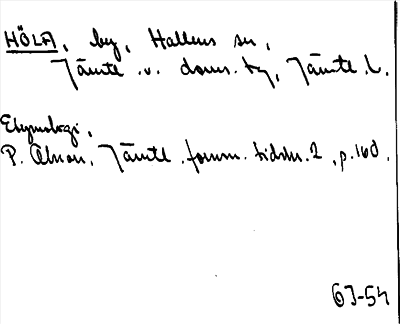 HÖLA, by, Hallens sn,
Jämtl. v. doms. tg, Jämtl. l.
Etymologi.
P. Olsson, Jämtl. fornm. tidskr. 2, p. 160.
63-54